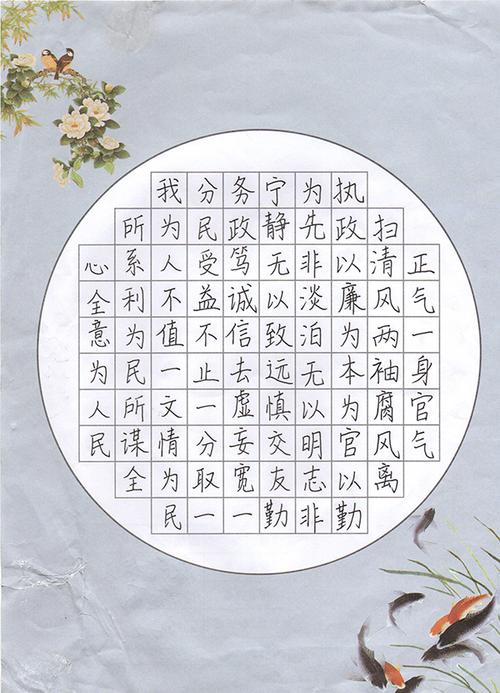 正气一身官气
扫清风两袖腐风离
执政以廉为本为官以勤
为先非淡泊无以明志非
宁静无以致远慎交友勤
务政笃诚信去虚妄宽一
分民受益不止一分取一
我为人不值一文情为民
所系利为民所谋全
心全意为人民